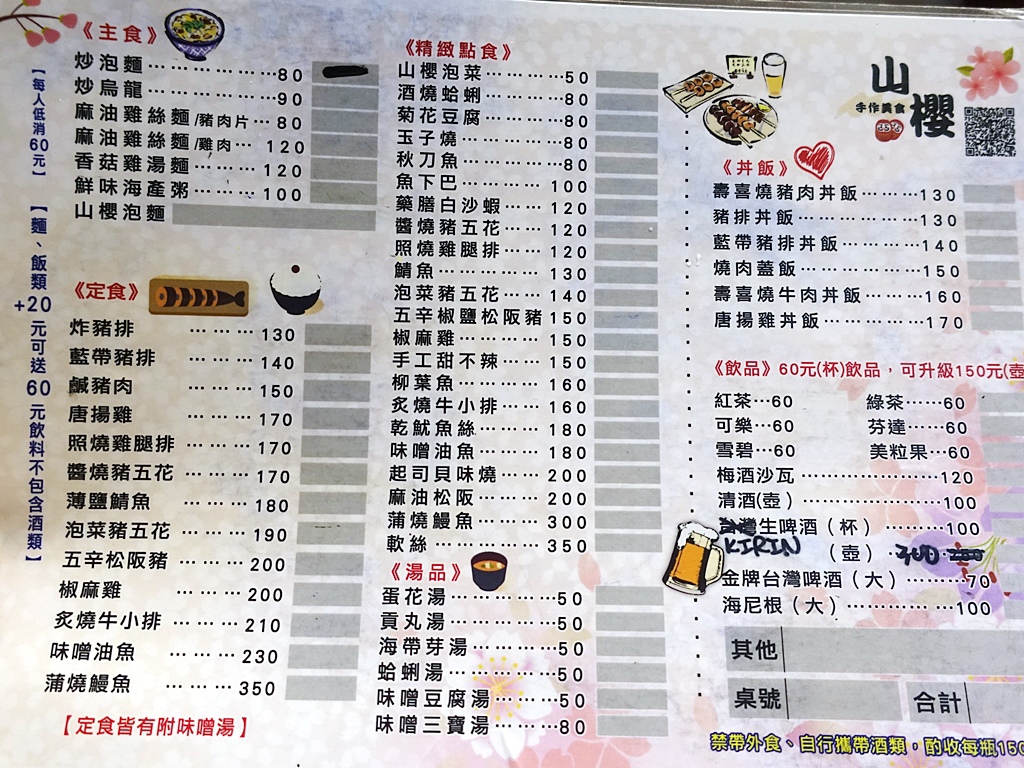 《主食》
炒泡麵⋯⋯⋯⋯⋯80
炒烏龍⋯⋯⋯⋯⋯90
麻油雞絲麵/豬肉片⋯80
麻油雞絲麵/雞肉⋯ 120
香菇雞湯麵⋯⋯⋯120
鮮味海產粥⋯⋯⋯100
山櫻泡麵
【每人低消60元】
【麵、飯類+20元可送60元飲料不包含酒類】
《定食》
炸豬排 ⋯⋯⋯130
藍帶豬排 ⋯⋯⋯140
鹹豬肉 ⋯⋯⋯150
唐揚雞 ⋯⋯⋯170
照燒雞腿排 ⋯⋯⋯170
醬燒豬五花 ⋯⋯⋯170
薄鹽鯖魚 ⋯⋯⋯180
泡菜豬五花 ⋯⋯⋯190
五辛松阪豬 ⋯⋯⋯200
椒麻雞 ⋯⋯⋯200
炙燒牛小排 ⋯⋯⋯210
味噌油魚 ⋯⋯⋯230
蒲燒鰻魚 ⋯⋯⋯350
【定食皆有附味噌湯】
《精緻點食》
山櫻泡菜⋯⋯⋯⋯50
酒燒蛤蜊⋯⋯⋯⋯80
菊花豆腐⋯⋯⋯⋯80
玉子燒⋯⋯⋯⋯80
秋刀魚⋯⋯⋯⋯80
魚下巴⋯⋯⋯⋯100
藥膳白沙蝦⋯⋯120
醬燒豬五花⋯⋯120
照燒雞腿排⋯⋯120
鯖魚⋯⋯⋯⋯130
泡菜豬五花⋯⋯140
五辛椒鹽松阪豬150
椒麻雞⋯⋯⋯150
手工甜不辣⋯⋯150
柳葉魚⋯⋯⋯160
炙燒牛小排⋯⋯160
乾魷魚絲⋯⋯⋯180
味噌油魚⋯⋯⋯180
起司貝味燒⋯⋯200
麻油松阪⋯⋯⋯200
蒲燒鰻魚⋯⋯⋯300
軟絲⋯⋯⋯⋯350
《湯品》
蛋花湯⋯⋯⋯⋯50
貢丸湯⋯⋯⋯⋯50
海帶芽湯⋯⋯⋯50
蛤蜊湯⋯⋯⋯⋯50
味噌豆腐湯⋯⋯50
味噌三寶湯⋯⋯80
山櫻
手作美食
《丼飯》
壽喜燒豬肉丼飯⋯⋯⋯130
豬排丼飯⋯⋯⋯⋯⋯130
藍帶豬排丼飯⋯⋯⋯140
燒肉蓋飯⋯⋯⋯⋯⋯150
壽喜燒牛肉丼飯⋯⋯⋯160
唐揚雞丼飯⋯⋯⋯⋯170
《飲品》60元(杯)飲品，可升級150元(壺
紅茶⋯60 綠茶⋯⋯60
可樂⋯60 芬達⋯⋯60
雪碧⋯60 美粒果⋯60
梅酒沙瓦⋯⋯⋯⋯⋯120
清酒(壺)⋯⋯⋯⋯⋯⋯100
生啤酒（杯）⋯⋯⋯100
KIRIN （壺）
金牌台灣啤酒（大）⋯⋯⋯70
海尼根（大）⋯⋯⋯⋯100
其他
桌號 合計
禁帶外食、自行攜帶酒類，酌收每瓶150